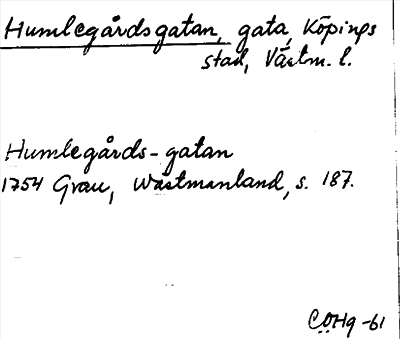 Humlegårdsgatan, gata, Köpings
stad, Västm. l.
Humlegårds-gatan
1754 Grau, Wästmanland, s. 187.
COHg -61